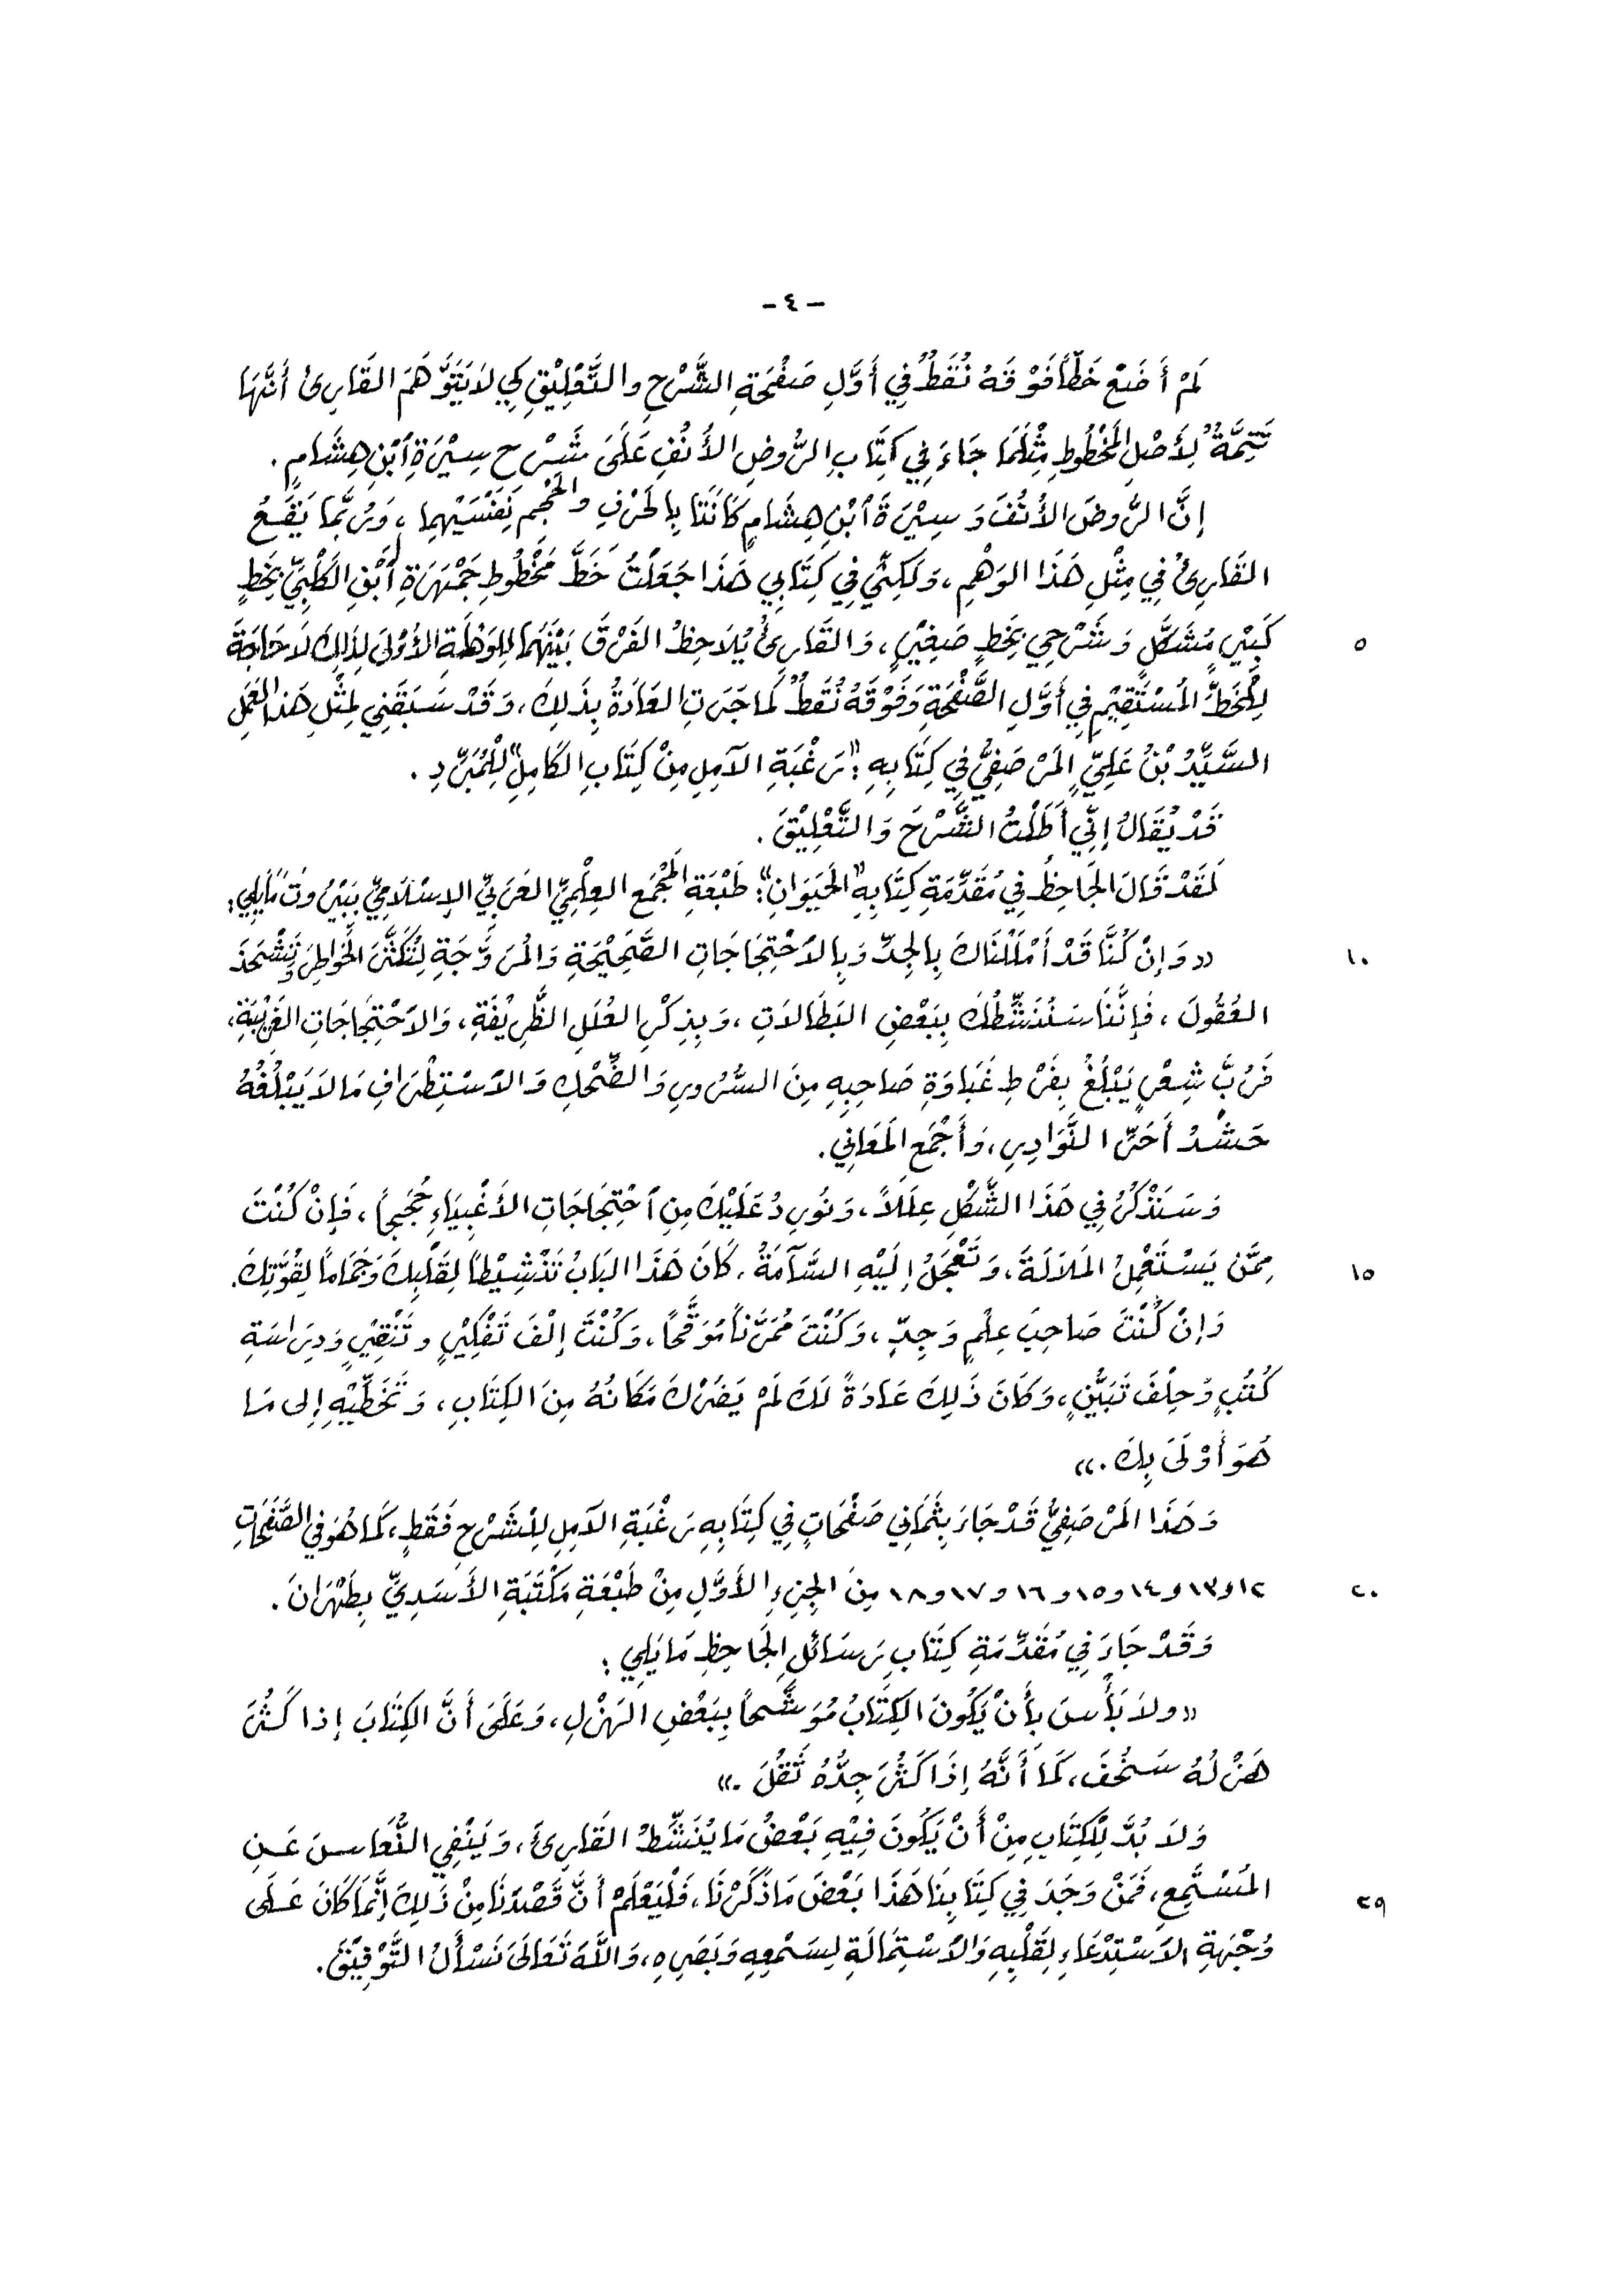 - ٤ -
لَمْ أَضَعْ خَطّاً فَوْقَهُ نُقَطٌ فِي أَوَّلِ صَفْحَةِ الشَّرْحِ والتَّعْلِيْقِ كِي لاَيَتَوَّهَمَ القَارِئُ أَنَّهَا
تَتِمَّةٌ لِأَصْلِ المَخْطُوطِ مِثْلَمَا جَاءَ فِي كِتَابِ الرُّوضِ الأُنُفِ عَلَىَ شَرْحِ سِيْرَةِ ابْنِ هِشَامٍ .
إِنَّ الرُّوضَ الأُنُفَ وَسِيْرَةَ ابْنِ هِشَامٍ كَانَتَا بِالحَرْفِ والحَجْمِ نَفْسَيْهِما ، وَرُبَّمَا يَقَعُ
القَارِئُ فِي مِثْلِ هَذَا الوَهْمِ ، وَلَكِنِّي فِي كِتَابِي هَذَا جَعَلْتُ خَطَّ مَخْطُوطِ جَمْهَرَةِ ابْنِ الكَلْبِيِّ بِخَطٍ
٥ كَبِيْرٍ مُشَكَّلٍ وَشَرْحِي بِخَطٍ صَغِيْرٍ ، وَالقَارِئُ يُلاَحِظُ الفَرْقَ بَيْنَهُمَا لِلوَهْلَةِ الأُوْلَى لِذَلِكَ لاَحَاجَةَ
لِلْخَطِّ المُسْتَقِيْمِ فِي أَوَّلِ الصَّفْحَةِ وَفَوْقَهُ نُقَطٌ كَمَا جَرَتِ العَادَةُ بِذَلِكَ ، وَقَدْ سَبَقَنِي لِمِثْلِ هَذَا العَمَلِ
السَّيِّدُ بْنُ عَلِيٍّ المَرْصَفِيُّ فِي كِتَابِهِ : "رَغْبَةِ الآمِلِ مِنْ كِتَابِ الكَامِلِ" لِلْمُبَرِّدِ .
قَدْ يُقَالُ إِنِّي أَطَلْتُ الشَّرْحَ وَالتَّعْلِيْقَ .
لَقَدْ قَالَ الجَاحِظُ فِي مُقَدِّمَةِ كِتَابِهِ "الحَيَوَانِ" : طَبْعَةِ المَجْمَعِ العِلْمِيِّ العَرَبِيِّ الإِسْلاَمِيِّ بِبَيْرُوتَ مَايَلِي :
١٠ «وَإِنْ كُنَّا قَدْ أَمْلَلْنَاكَ بِالجِدِّ وَبِالاَحْتِجَاجَاتِ الصَّحِيْحَةِ وَالمُرَوَّجَةِ لِتُكَثَّرَ الخَوَاطِرَ وَتَشْحَذَ
العُقُولَ ، فَإِنَّنَا سَنُنَشِّطُكَ بِبَعْضِ البَطَالاَتِ ، وَبِذِكْرِ العِلَلِ الظَّرِيْفَةِ ، وَالاَحْتِجَاجَاتِ الغَرِيْبَةِ ،
فَرُبَّ شِعْرٍ يَبْلُغُ بِفَرْطِ غَبَاوَةِ صَاحِبِهِ مِنَ السُّرُورِ وَالضِّحْكِ وَالاَسْتِطْرَافِ مَالاَ يَبْلُغُهُ
حَشْدُ أَحَرِّ النَّوَادِرِ ، وَأَجْمَعِ المَعَانِي .
وَسَنَذْكُرُ فِي هَذَا الشَّكْلِ عِلَلاً ، وَنُورِدُ عَلَيْكَ مِنِ احْتِجَاجَاتِ الأَغْبِيَاءِ حُجَجاً ، فَإِنْ كُنْتَ
١٥ مِمَّنْ يَسْتَعْمِلُ المَلاَلَةَ ، وَتَعْجَلُ إِلَيْهِ السَّآمَةُ ، كَانَ هَذَا البَابُ تَنْشِيْطاً لِقَلْبِكَ وَجَمَاماً لِقُوَّتِكَ .
وَإِنْ كُنْتَ صَاحِبَ عِلْمٍ وَجِدٍّ ، وَكُنْتَ مُمَرَّناً مُوَقَّحاً ، وَكُنْتَ إِلْفَ تَفْكِيْرٍ وَتَنْقِيْرٍ وَدِرَاسَةِ
كُتُبٍ وَحِلْفَ تَبَيُّنٍ ، وَكَانَ ذَلِكَ عَادَةً لَكَ لَمْ يَضُرْكَ مَكَانُهُ مِنَ الكِتَابِ ، وَتَخَطِّيْهِ إِلى مَا
هُوَ أَوْلَىَ بِكَ .»
وَهَذَا المَرْصَفِيُّ قَدْ جَاءَ بِثَمَانِي صَفْحَاتٍ فِي كِتَابِهِ رَغْبَةِ الآمِلِ لِلْشَرْحِ فَقَطْ ، كَمَا هُوَ فِي الصَّفَحَاتِ
٢٠ ١٢و١٣و ١٤و١٥و ١٦و ١٧و١٨ مِنَ الجِزءِ الأَوَّلِ مِنْ طَبْعَةِ مَكْتَبَةِ الأَسَدِيِّ بِطَهْرَانَ .
وَقَدْ جَاءَ فِي مُقَدِّمَةِ كِتَابِ رَسَائِلِ الجَاحِظِ مَايَلِي :
«ولاَ بَأْسَ بِأَنْ يَكُونَ الكِتَابُ مُوَشَّحاً بِبَعْضِ الهَزْلِ ، وَعَلَىَ أَنَّ الكِتَابَ إِذا كَثُرَ
هَزْلُهُ سَخُفَ ، كَمَا أَنَّهُ إِذَا كَثُرَ جِدُّهُ ثَقُلَ .»
وَلاَ بُدَّ لِلْكِتَابِ مِنْ أَنْ يَكُونَ فِيْهِ بَعْضُ مَا يُنَشِّطُ القَارِئَ ، وَيَنْفِي النُّعَاسَ عَنِ
٢٩ المُسْتَمِعِ ، فَمَنْ وَجَدَ فِي كِتَابِنَا هَذَا بَعْضَ مَاذَكَرْنَا ، فَلْيَعْلَمْ أَنَّ قَصْدَنَا مِنْ ذَلِكَ إِنَّمَا كَانَ عَلَى
وُجْهَةِ الاَسْتِدْعَاءِ لِقَلْبِهِ وَالاَسْتِمَالَةِ لِسَمْعِهِ وَبَصَرِهِ ، وَاللَّهَ تَعَالَىَ نَسْأَلُ التَّوْفِيْقَ .